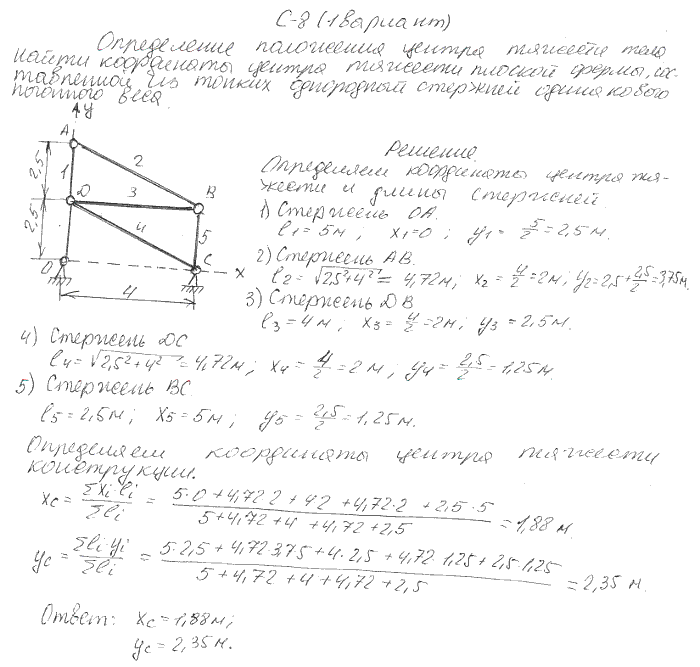 С-8 (1 вариант)
Определение положения центра тяжести тела
Найти координаты центра тяжести плоской фермы, сос-
тавленной из тонких однородный стержней одинакового
погонного веса.
y
A
2,5
1
2
D
3
B
2,5
4
5
O
C
x
4
Решение.
Определяем координаты центра тя-
жести и длины стержней.
1) Стержень OA.
l₁ = 5м ; x₁=0 ; y₁ = 5/2 = 2,5 м.
2) Стержень AB.
l₂ = √2,5²+4² = 4,72м; x₂ = 4/2 = 2м; y₂ = 2,5 + 2,5/2 = 3,75м
3) Стержень DB
l₃ = 4м , x₃ = 4/2 = 2м; y₃ = 2,5м.
4) Стержень DC
l₄ = √2,5²+4² = 4,72м ; x₄ = 4/2 = 2 м ; y₄ = 2,5/2 = 1,25м.
5) Стержень BC.
l₅ = 2,5м ; x₅ = 5м ; y₅ = 2,5/2 = 1,25м.
Определяем координаты центра тяжести
конструкции.
xc = Σxi·li / Σli = 5·0 + 4,72·2 + 4·2 + 4,72·2 + 2,5·5 / 5 + 4,72 + 4 + 4,72 + 2,5 = 1,88 м.
yc = Σli·yi / Σli = 5·2,5 + 4,72·3,75 + 4·2,5 + 4,72·1,25 + 2,5·1,25 / 5 + 4,72 + 4 + 4,72 + 2,5 = 2,35 м.
Ответ: xc = 1,88м;
yc = 2,35м.